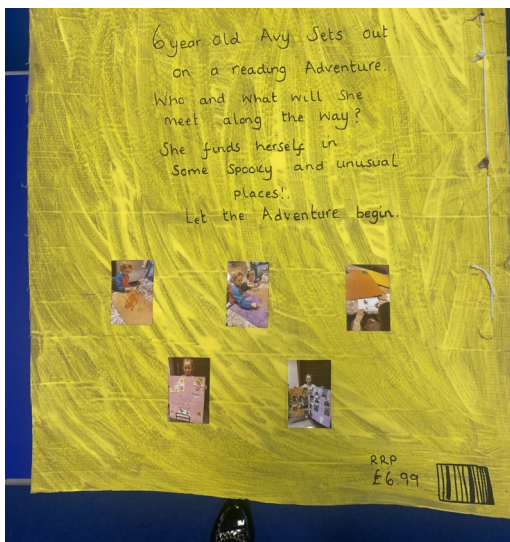 6 year old Avy Sets out
on a reading Adventure.
Who and what will She
meet along the way?
She finds herself in
Some Spooky and unusual
places!.
Let the Adventure begin.
RRP
£6.99